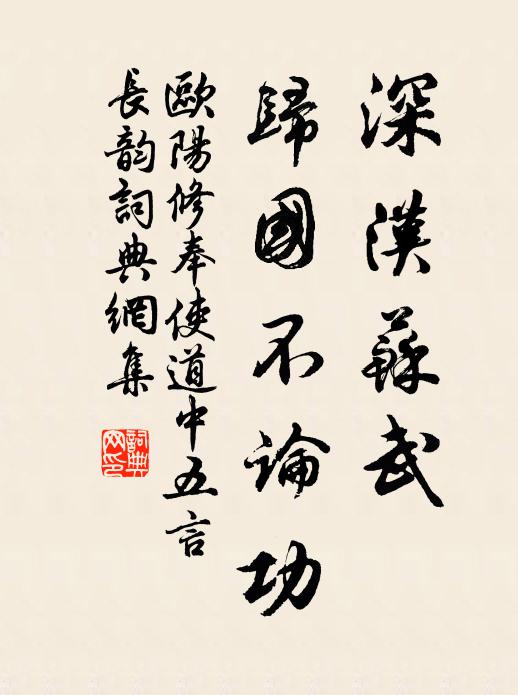 深漢蘇武
歸國不論功
歐陽修奉使道中五言
長韵詞典網集
詞典
网印